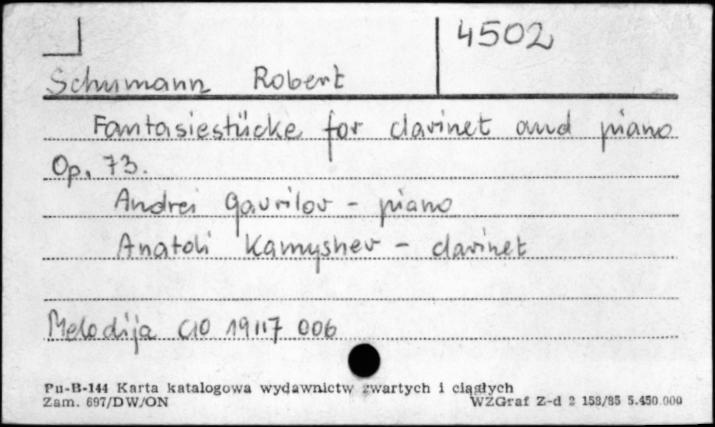 4502
Schumann Robert
Fantasiestücke for clarinet and piano
Op. 73.
Andrei Gavrilov - piano
Anatoli Kamyshev - clarinet
Melodija C10 19117 006
Pu-B-144 Karta katalogowa wydawnictw zwartych i ciągłych
Zam. 697/DW/ON
WZGraf Z-d 2 158/85 5.450.000